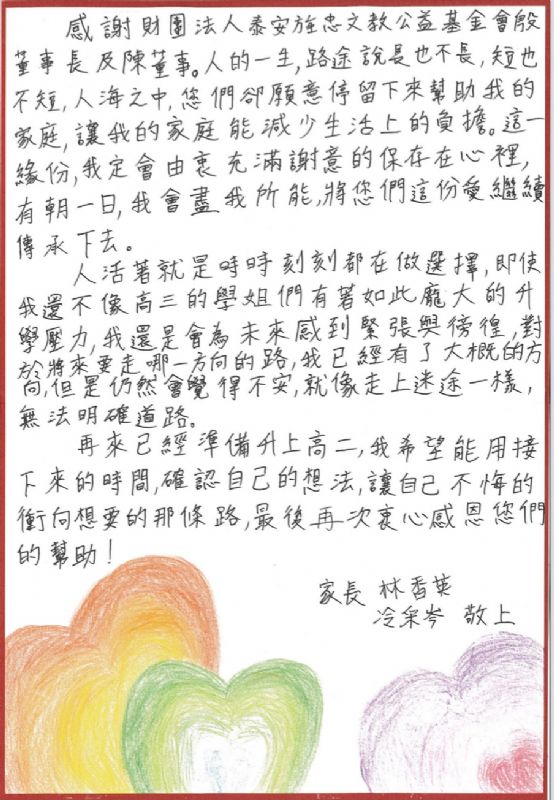 感謝財團法人泰安旌忠文教公益基金會殷
董事長及陳董事。人的一生,路途說長也不長,短也
不短,人海之中,您們卻願意停留下來幫助我的
家庭,讓我的家庭能減少生活上的負擔。這一
緣份,我定會由衷充滿謝意的保存在心裡,
有朝一日,我會盡我所能,將您們這份愛繼續
傳承下去。
人活著就是時時刻刻都在做選擇,即使
我還不像高三的學姐們有著如此龐大的升
學壓力,我還是會為未來感到緊張與徬徨,對
於將來要走哪一方向的路,我已經有了大概的方
向,但是仍然會覺得不安,就像走上迷途一樣,
無法明確道路。
再來已經準備升上高二,我希望能用接
下來的時間,確認自己的想法,讓自己不悔的
衝向想要的那條路,最後再次衷心感恩您們
的幫助!
家長 林香英
冷采岑 敬上